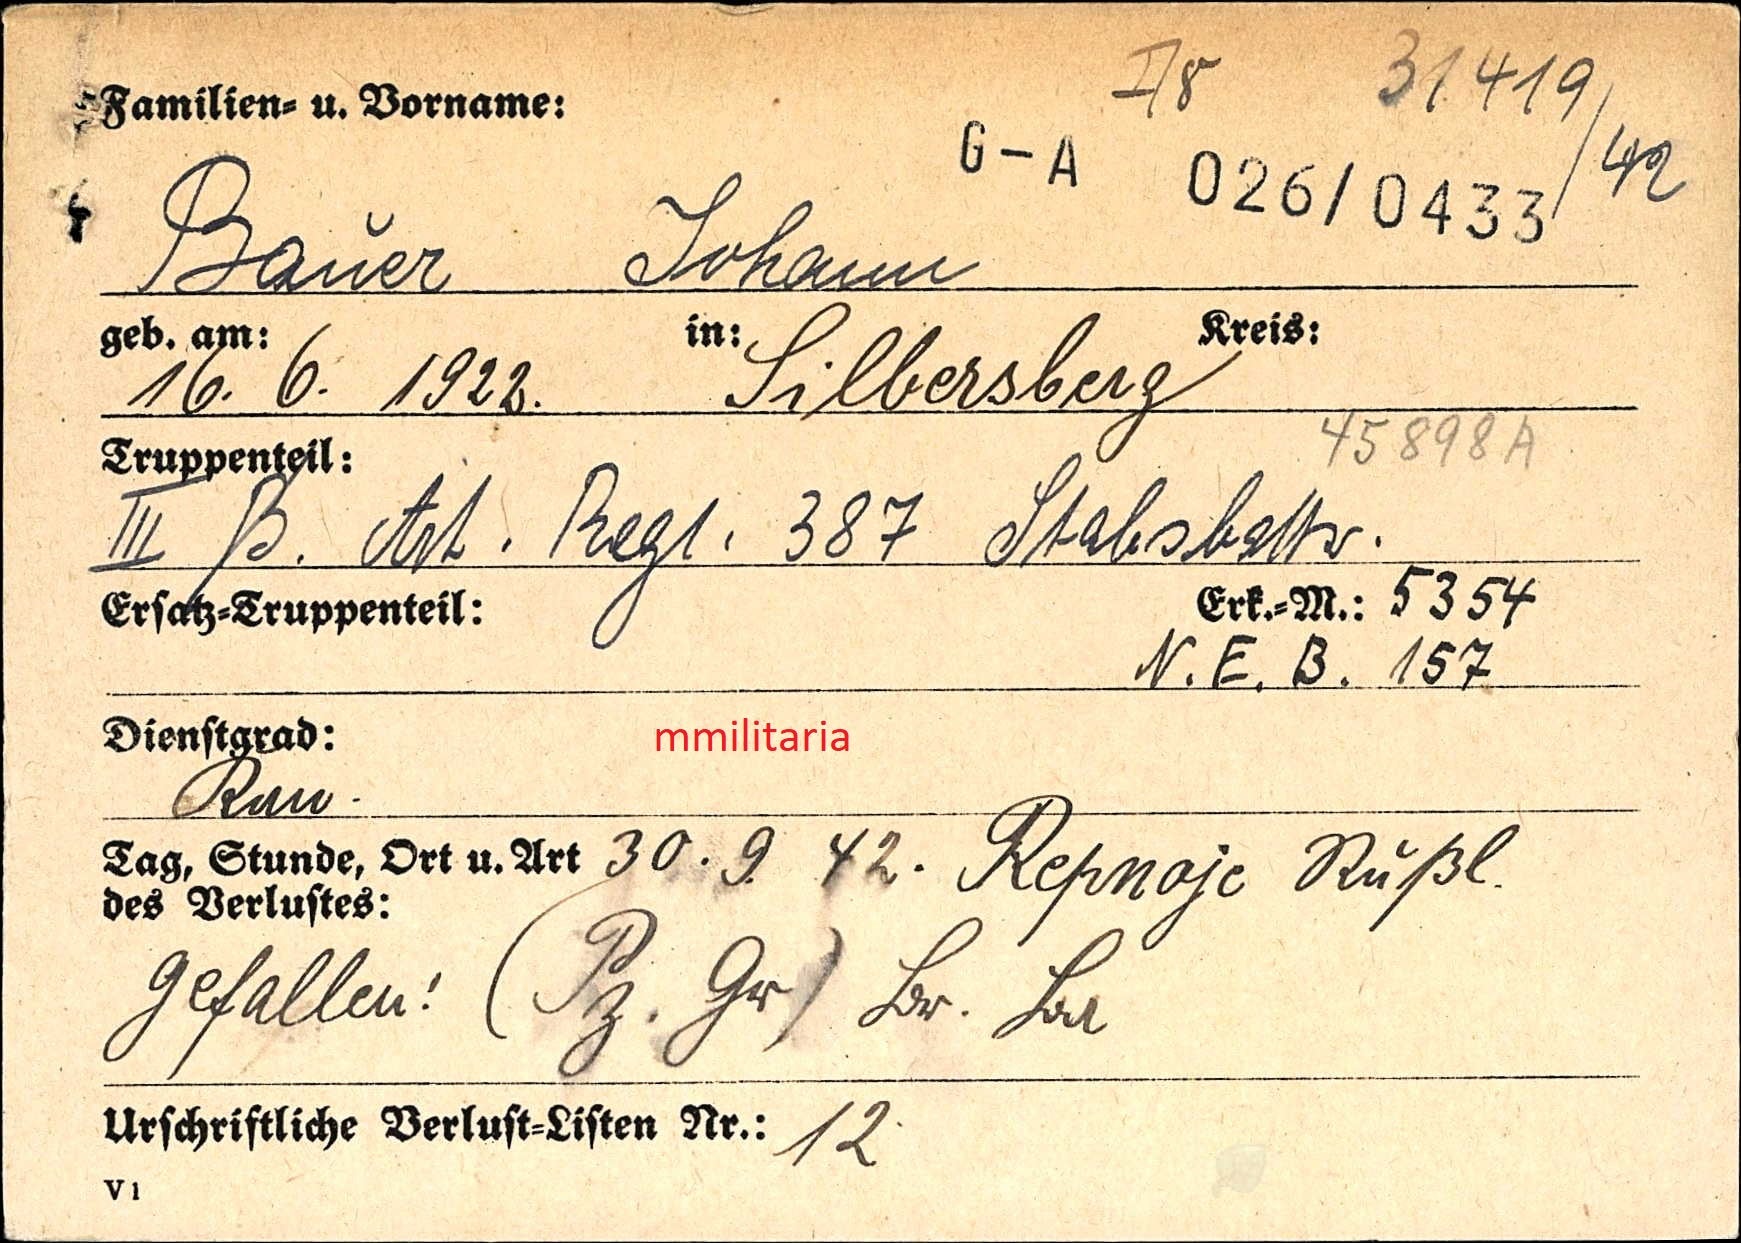 I/8 31419/42
Familien- u. Vorname:
G-A 026/0433
Bauer Johann
geb. am: in: Kreis:
16. 6. 1922. Silbersberg
45898A
Truppenteil:
III B. Art. Regt. 387 Stabsbattr.
Ersatz-Truppenteil: Erk.-M.: 5354
N. E. B. 157
Dienstgrad:
mmilitaria
Kan.
Tag, Stunde, Ort u. Art 30. 9. 42. Repnoje Rußl.
des Verlustes:
gefallen! (Pz. Gr)
Urschriftliche Verlust-Listen Nr.: 12
V 1